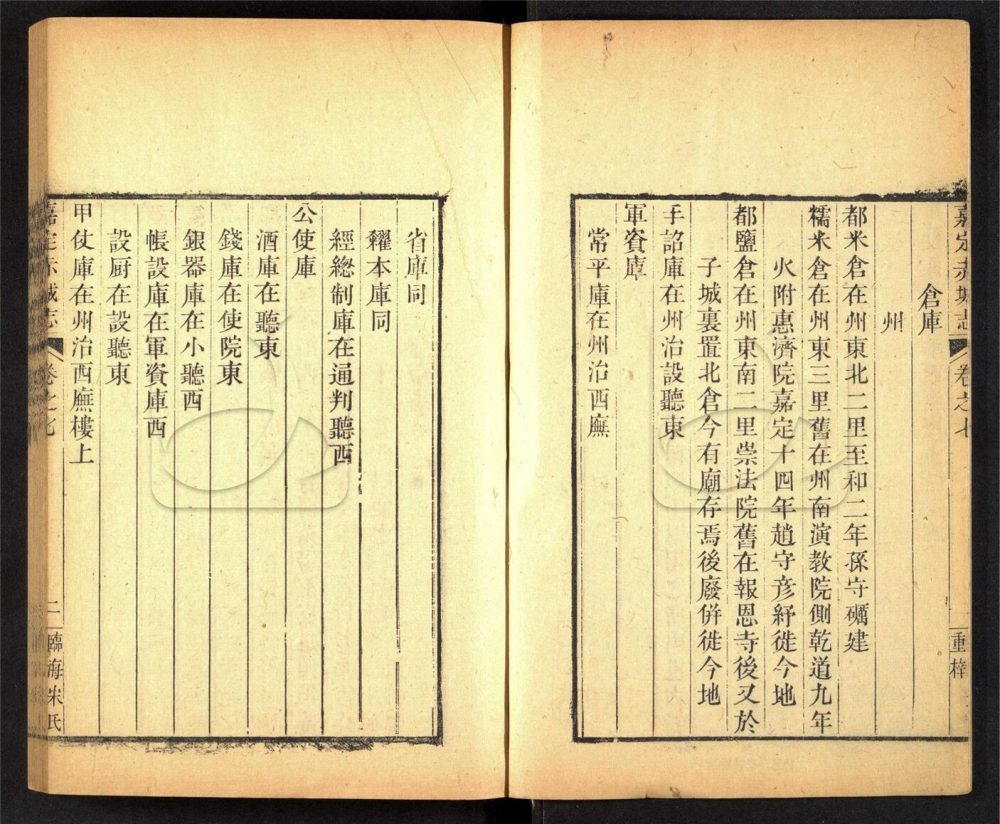 嘉定赤城志 卷之七 重梓
倉庫
州
都米倉在州東北二里至和二年孫守礪建
糯米倉在州東三里舊在州南演教院側乾道九年
火附惠濟院嘉定十四年趙守彥紓徙今地
都鹽倉在州東南二里崇法院舊在報恩寺後又於
子城裏置北倉今有廟存焉後廢併徙今地
手詔庫在州治設聽東
軍資庫
常平庫在州治西廡
省庫同
糴本庫同
經總制庫在通判聽西
公使庫
酒庫在聽東
錢庫在使院東
銀器庫在小聽西
帳設庫在軍資庫西
設厨在設聽東
甲仗庫在州治西廡樓上
嘉定赤城志 卷之七 二 臨海宋氏